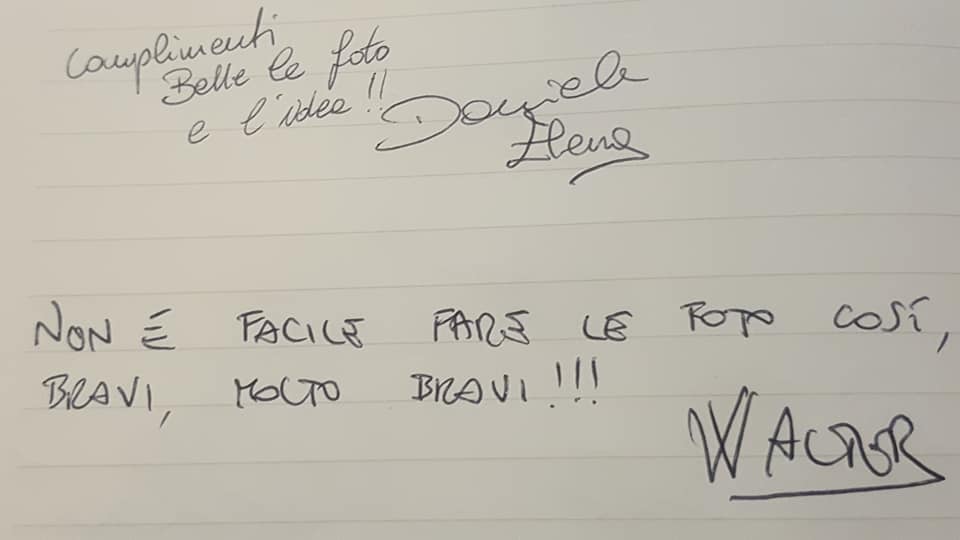 Complimenti
Belle le foto
e l'idea!!
Daniele
Elena
NON É FACILE FARE LE FOTO COSÍ,
BRAVI, MOLTO BRAVI!!!
WALTER